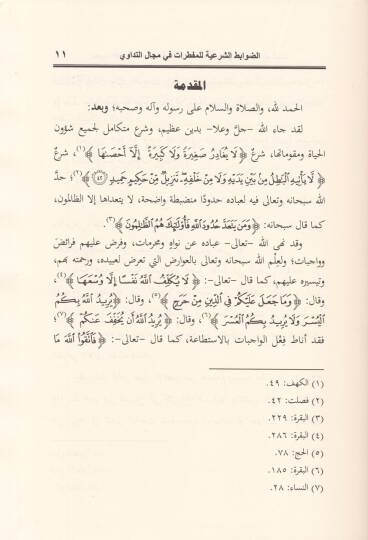 الضوابط الشرعية للمفطرات في مجال التداوي ١١
المقدمة
الحمد لله، والصلاة والسلام على رسوله وآله وصحبه؛ وبعد:
لقد جاء الله -جلَّ وعلا- بدين عظيم، وشرع متكامل لجميع شؤون
الحياة ومقوماتها، شرعٌ ﴿لَا يُغَادِرُ صَغِيرَةً وَلَا كَبِيرَةً إِلَّا أَحْصَىٰهَا﴾(١)، شرعٌ
﴿لَّا يَأْتِيهِ الْبَٰطِلُ مِنۢ بَيْنِ يَدَيْهِ وَلَا مِنْ خَلْفِهِۦ ۖ تَنزِيلٌ مِّنْ حَكِيمٍ حَمِيدٍ ﴿٤٢﴾﴾(٢)؛ حدَّ
الله سبحانه وتعالى فيه لعباده حدودًا منضبطة واضحة، لا يتعداها إلا الظالمون،
كما قال سبحانه: ﴿وَمَن يَتَعَدَّ حُدُودَ اللَّهِ فَأُو۟لَٰٓئِكَ هُمُ الظَّٰلِمُونَ﴾(٣).
وقد نهى الله -تعالى- عباده عن نواهٍ ومحرمات، وفرض عليهم فرائضَ
وواجبات؛ ولعِلْم الله سبحانه وتعالى بالعوارض التي تعرض لعبيده، ورحمته بهم،
وتيسيره عليهم، كما قال -تعالى-: ﴿لَا يُكَلِّفُ اللَّهُ نَفْسًا إِلَّا وُسْعَهَا﴾(٤)،
وقال: ﴿وَمَا جَعَلَ عَلَيْكُمْ فِي الدِّينِ مِنْ حَرَجٍ﴾(٥)، وقال: ﴿يُرِيدُ اللَّهُ بِكُمُ
الْيُسْرَ وَلَا يُرِيدُ بِكُمُ الْعُسْرَ﴾(٦)، وقال: ﴿يُرِيدُ اللَّهُ أَن يُخَفِّفَ عَنكُمْ﴾(٧)؛
فقد أناط فِعْل الواجبات بالاستطاعة، كما قال -تعالى-: ﴿فَاتَّقُوا اللَّهَ مَا
(١) الكهف: ٤٩.
(٢) فصلت: ٤٢.
(٣) البقرة: ٢٢٩.
(٤) البقرة: ٢٨٦.
(٥) الحج: ٧٨.
(٦) البقرة: ١٨٥.
(٧) النساء: ٢٨.